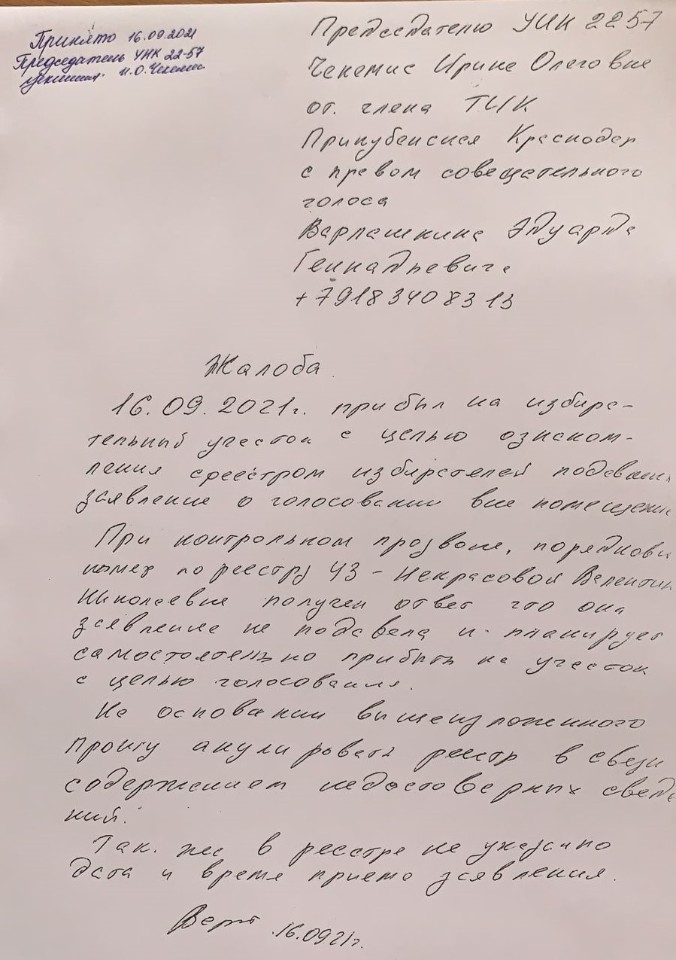 Принято 16.09.2021
Председатель УИК 22-57
И.О. Чекемис
Председателю УИК 2257
Чекемис Ирине Олеговне
от члена ТИК
Прикубенская Краснодар
с правом совещательного
голоса
Варлашкина Эдуарда
Геннадьевича
+79183408313
Жалоба
16.09.2021г. прибыл на избира-
тельный участок с целью ознаком-
ления среестром избирателей подавших
заявление о голосовании вне помещения
При контрольном прозвоне, порядковый
номер по реестру 43 - Некрасовой Валентине
Николаевне получен ответ что она
заявление не подавала и планирует
самостоятельно прибыть на участок
с целью голосования.
На основании вышеизложенного
прошу анулировать реестр в связи
содержанием недостоверных сведе
ний.
Так же в реестре не указано
дата и время приема заявления.
Варл 16.0921г.